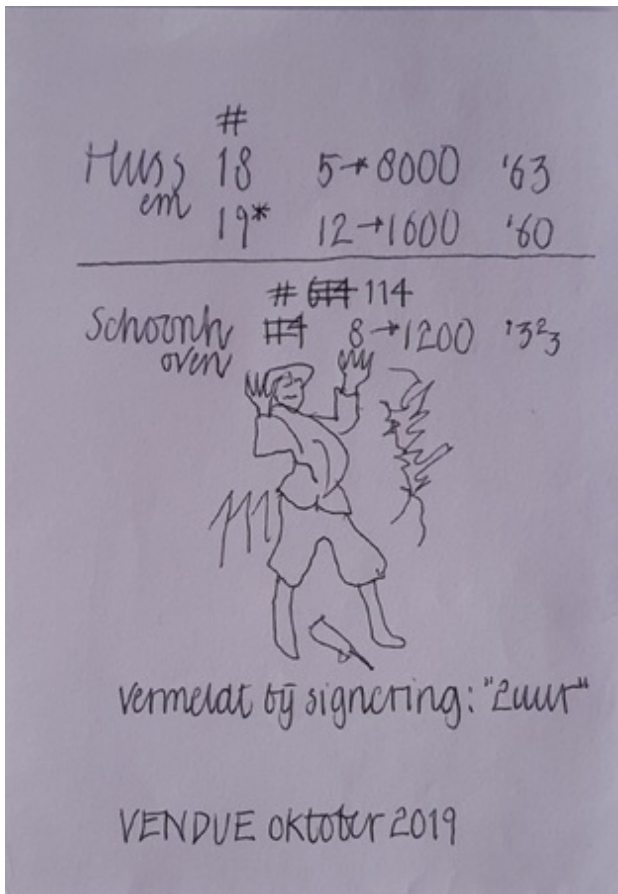 #
Huss 18 5→8000 '63
em 19* 12→1600 '60
# 614 114
Schoonh 114 8→1200 '3²3
oven
vermeldt bij signering: "2uur"
VENDUE oktober 2019